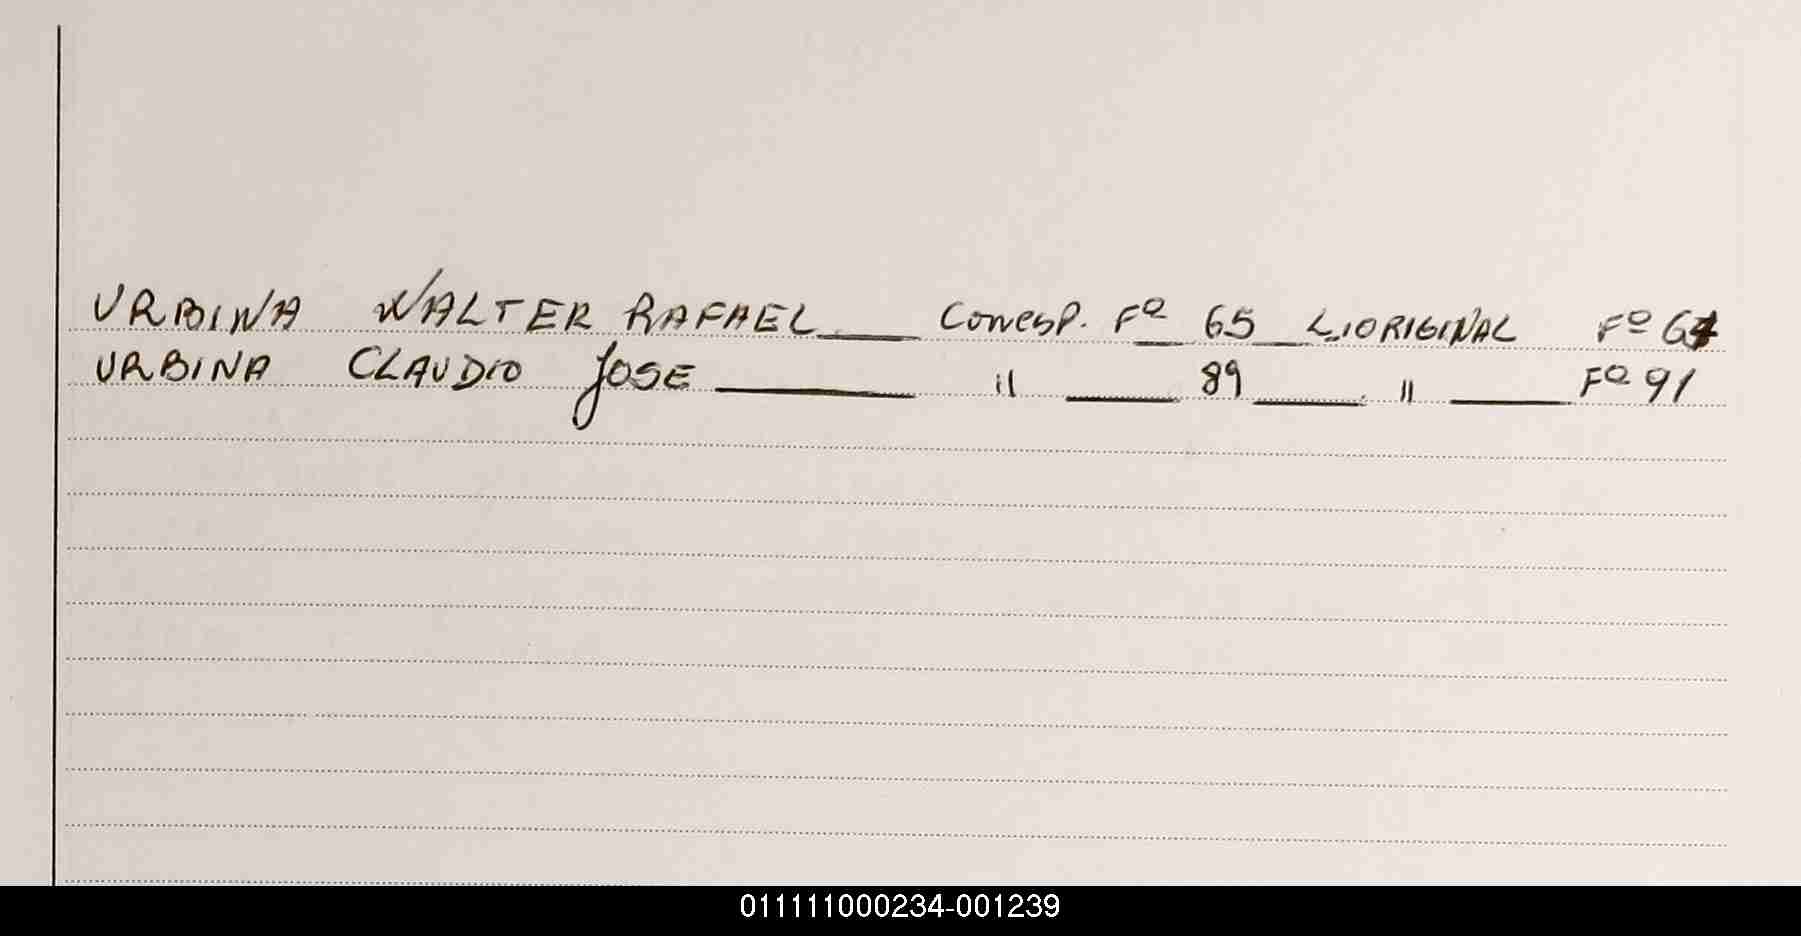 URBINA WALTER RAFAEL ___ Corresp. Fº 65 L. ORIGINAL Fº
URBINA CLAUDIO JOSE ___ " ___ 89 ___ " ___ Fº 91
011111000234-001239